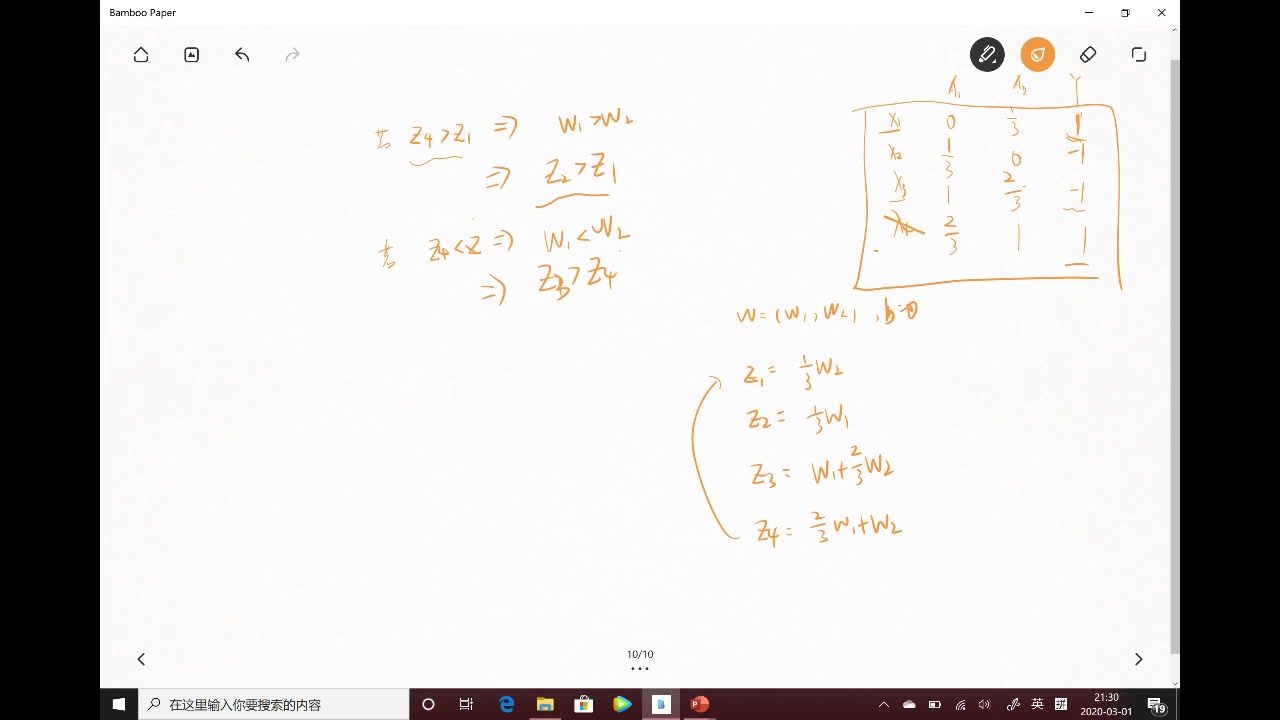 Bamboo Paper
若 Z4>Z1 ⇒ W1>W2
⇒ Z2>Z1
若 Z4<Z ⇒ W1<W2
⇒ Z3>Z4
A1 A2 Y
X1 0 1/3 1
X2 1/3 0 -1
X3 1 2/3 -1
X4 2/3 1 1
W=(W1,W2), b=0
Z1= 1/3 W2
Z2= 1/3 W1
Z3= W1+2/3 W2
Z4= 2/3 W1+W2
10/10
在这里输入你要搜索的内容
英
拼
21:30
2020-03-01
19